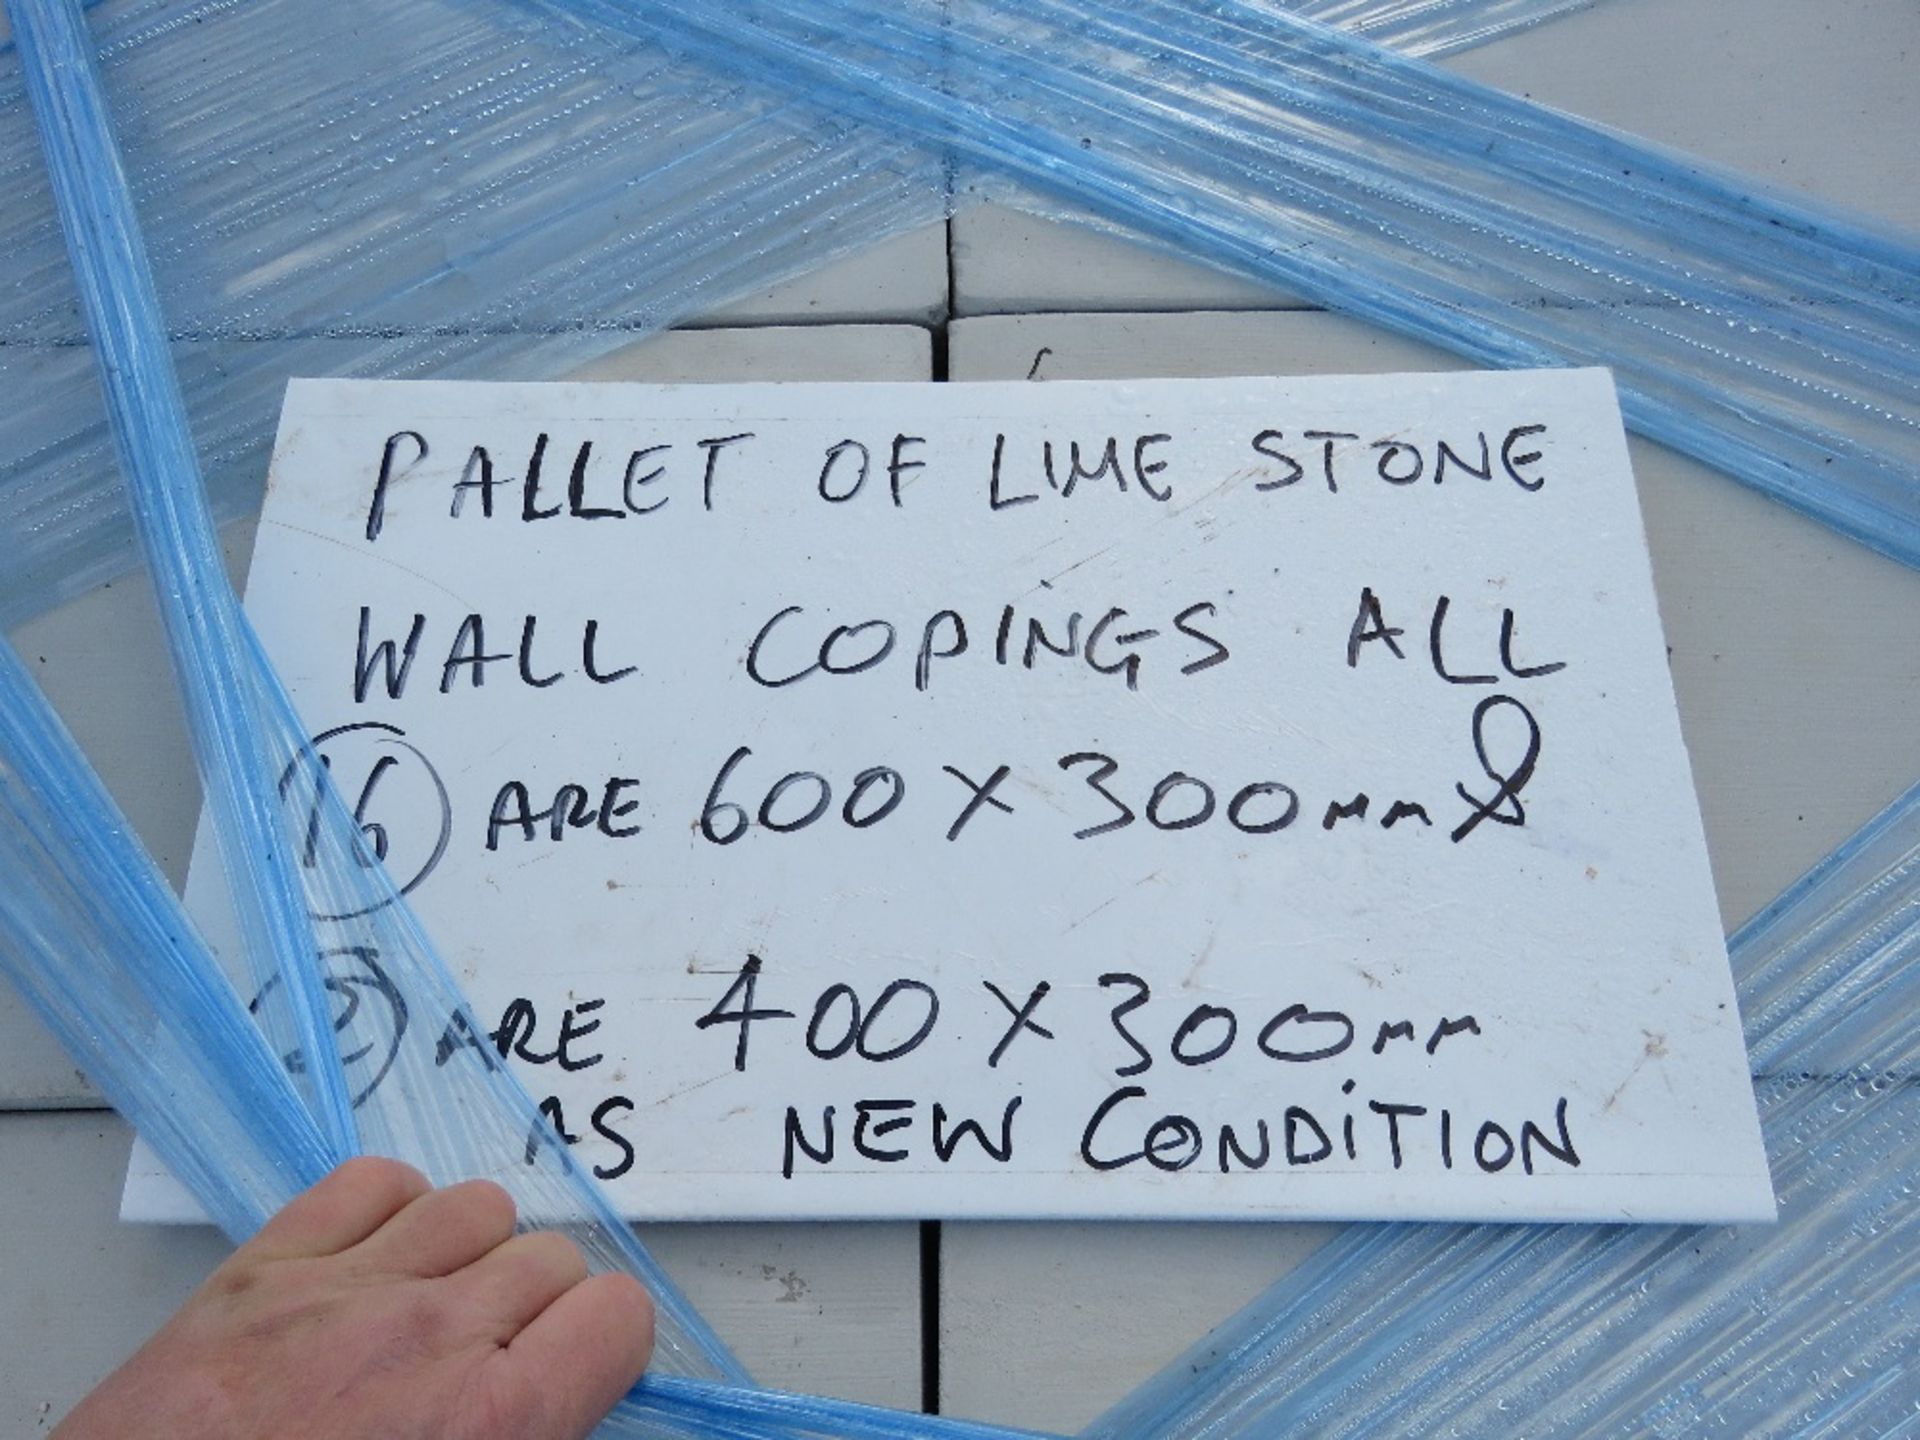 PALLET OF LIME STONE
WALL COPINGS ALL
16 ARE 600 X 300mm &
2 ARE 400 X 300mm
AS NEW CONDITION